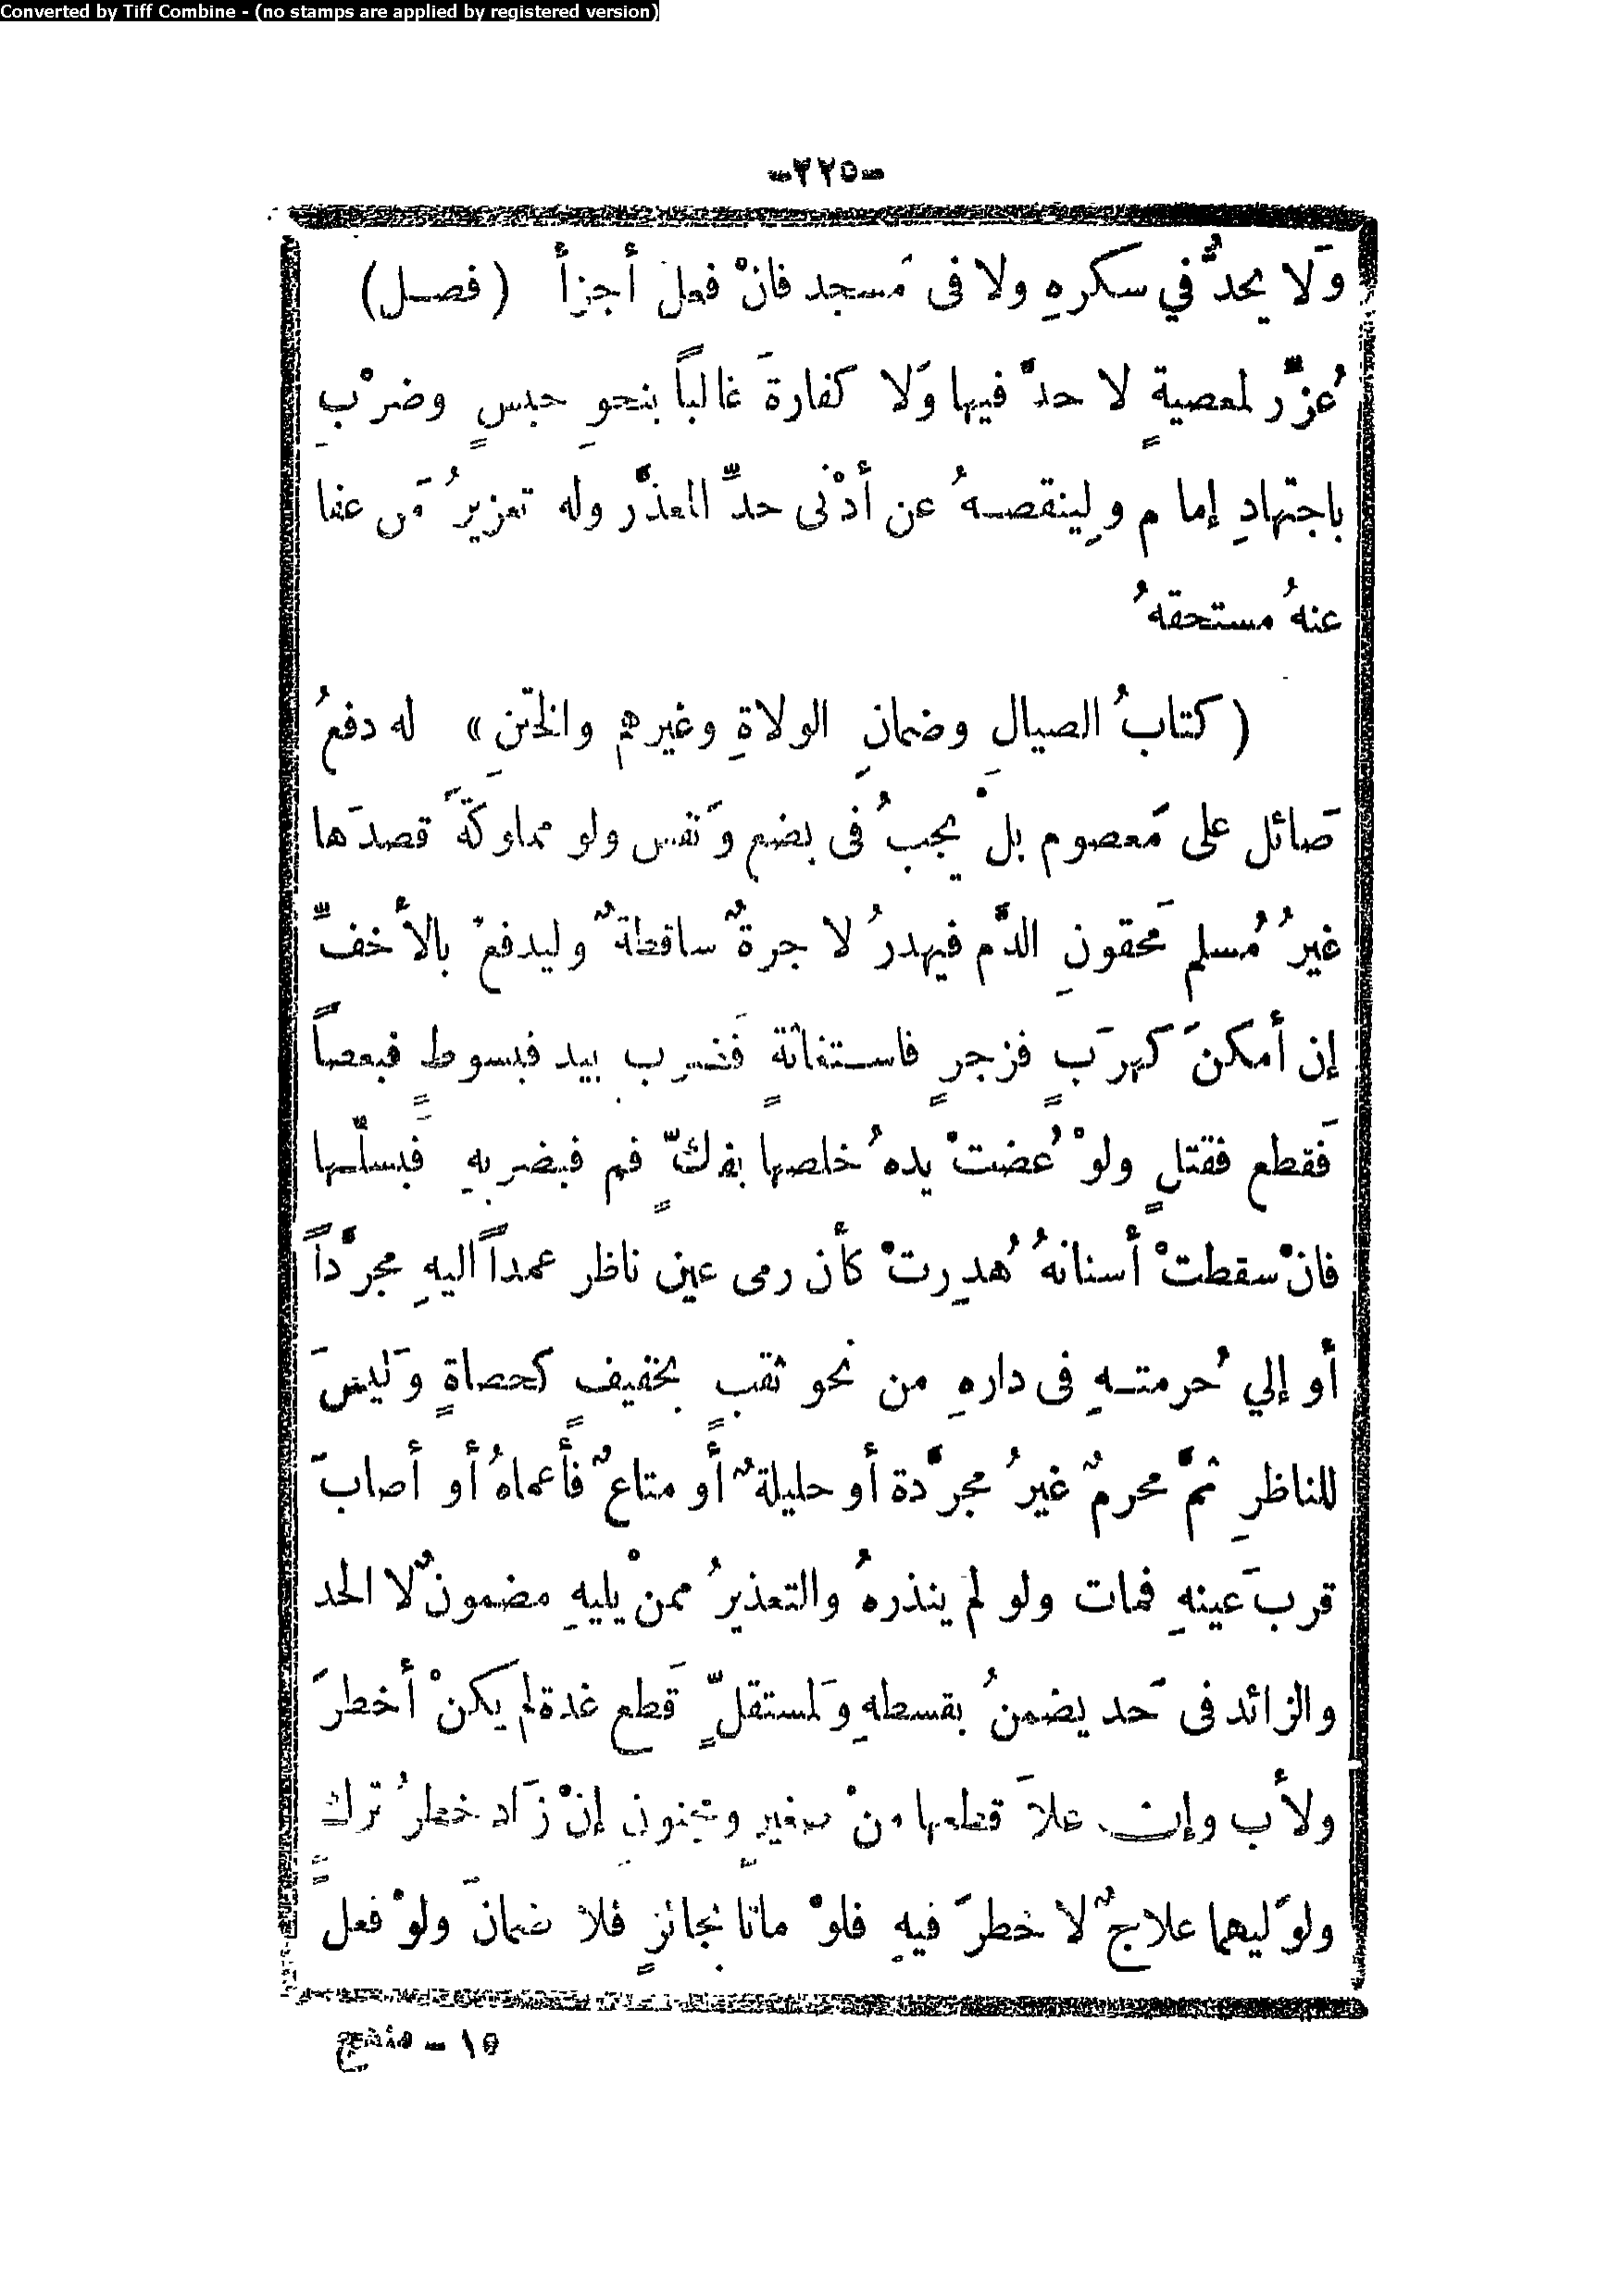 Converted by Tiff Combine - (no stamps are applied by registered version)
-٢٢٥-
وَلا يحدُّ في سكرهِ ولا فى مَسجد فانْ فعل أجزأ (فصـل)
عُزِّر لمعصيةٍ لا حدَّ فيها وَلا كفارةَ غالباً بنحوِ حبسٍ وضرْبٍ
باجتهادِ إمام ولينقصـهُ عن أدْنى حدِّ المعذَّر وله تعزيرُ مَن عفا
عنهُ مستحقهُ
(كتابُ الصيالِ وضمانِ الولاةِ وغيرهم والختَنِ) له دفعُ
صَائل على مَعصوم بلْ يجبُ فى بضع وَنفس ولو مملوكةً قصدَها
غيرُ مُسلم مَحقونِ الدَّم فيهدرُ لا جرةٌ ساقطةٌ وليدفعْ بالأَخفِّ
إن أمكنَ كهرَبٍ فزجرٍ فاستغاثةٍ فَضرب بيد فبسوطٍ فبعصاً
فَقطع فقتلٍ ولوْ عُضتْ يدهُ خلصها بفكِّ فم فبضربهِ فَبسلّها
فانْ سقطتْ أسنانهُ هُدِرتْ كأن رمى عين ناظر عمداً اليهِ مجرَّداً
أو إلي حُرمتـهِ فى دارهِ من نحو ثقبٍ بخفيفٍ كحصاةٍ وَليسَ
للناظرِ ثمَّ محرمٌ غيرُ مجرَّدة أو حليلةٌ أو متاعٌ فأَعماهُ أو أصابَ
قربَ عينهِ فمات ولو لم ينذرهُ والتعذيرُ ممنْ يليهِ مضمونٌ لا الحد
والزائد فى حَد يضمنُ بقسطهِ وَلمستقلٍّ قَطع غدة لم يكنْ أخطرَ
ولأب وإن علاَ قطعها منْ صغيرٍ ومجنونٍ إنْ زَاد خطرُ تركٍ
ولوَليهما علاجٌ لا خطرَ فيهِ فلوْ ماتا بجائزٍ فلا ضمانَ ولوْ فعل
١٥ – منهج